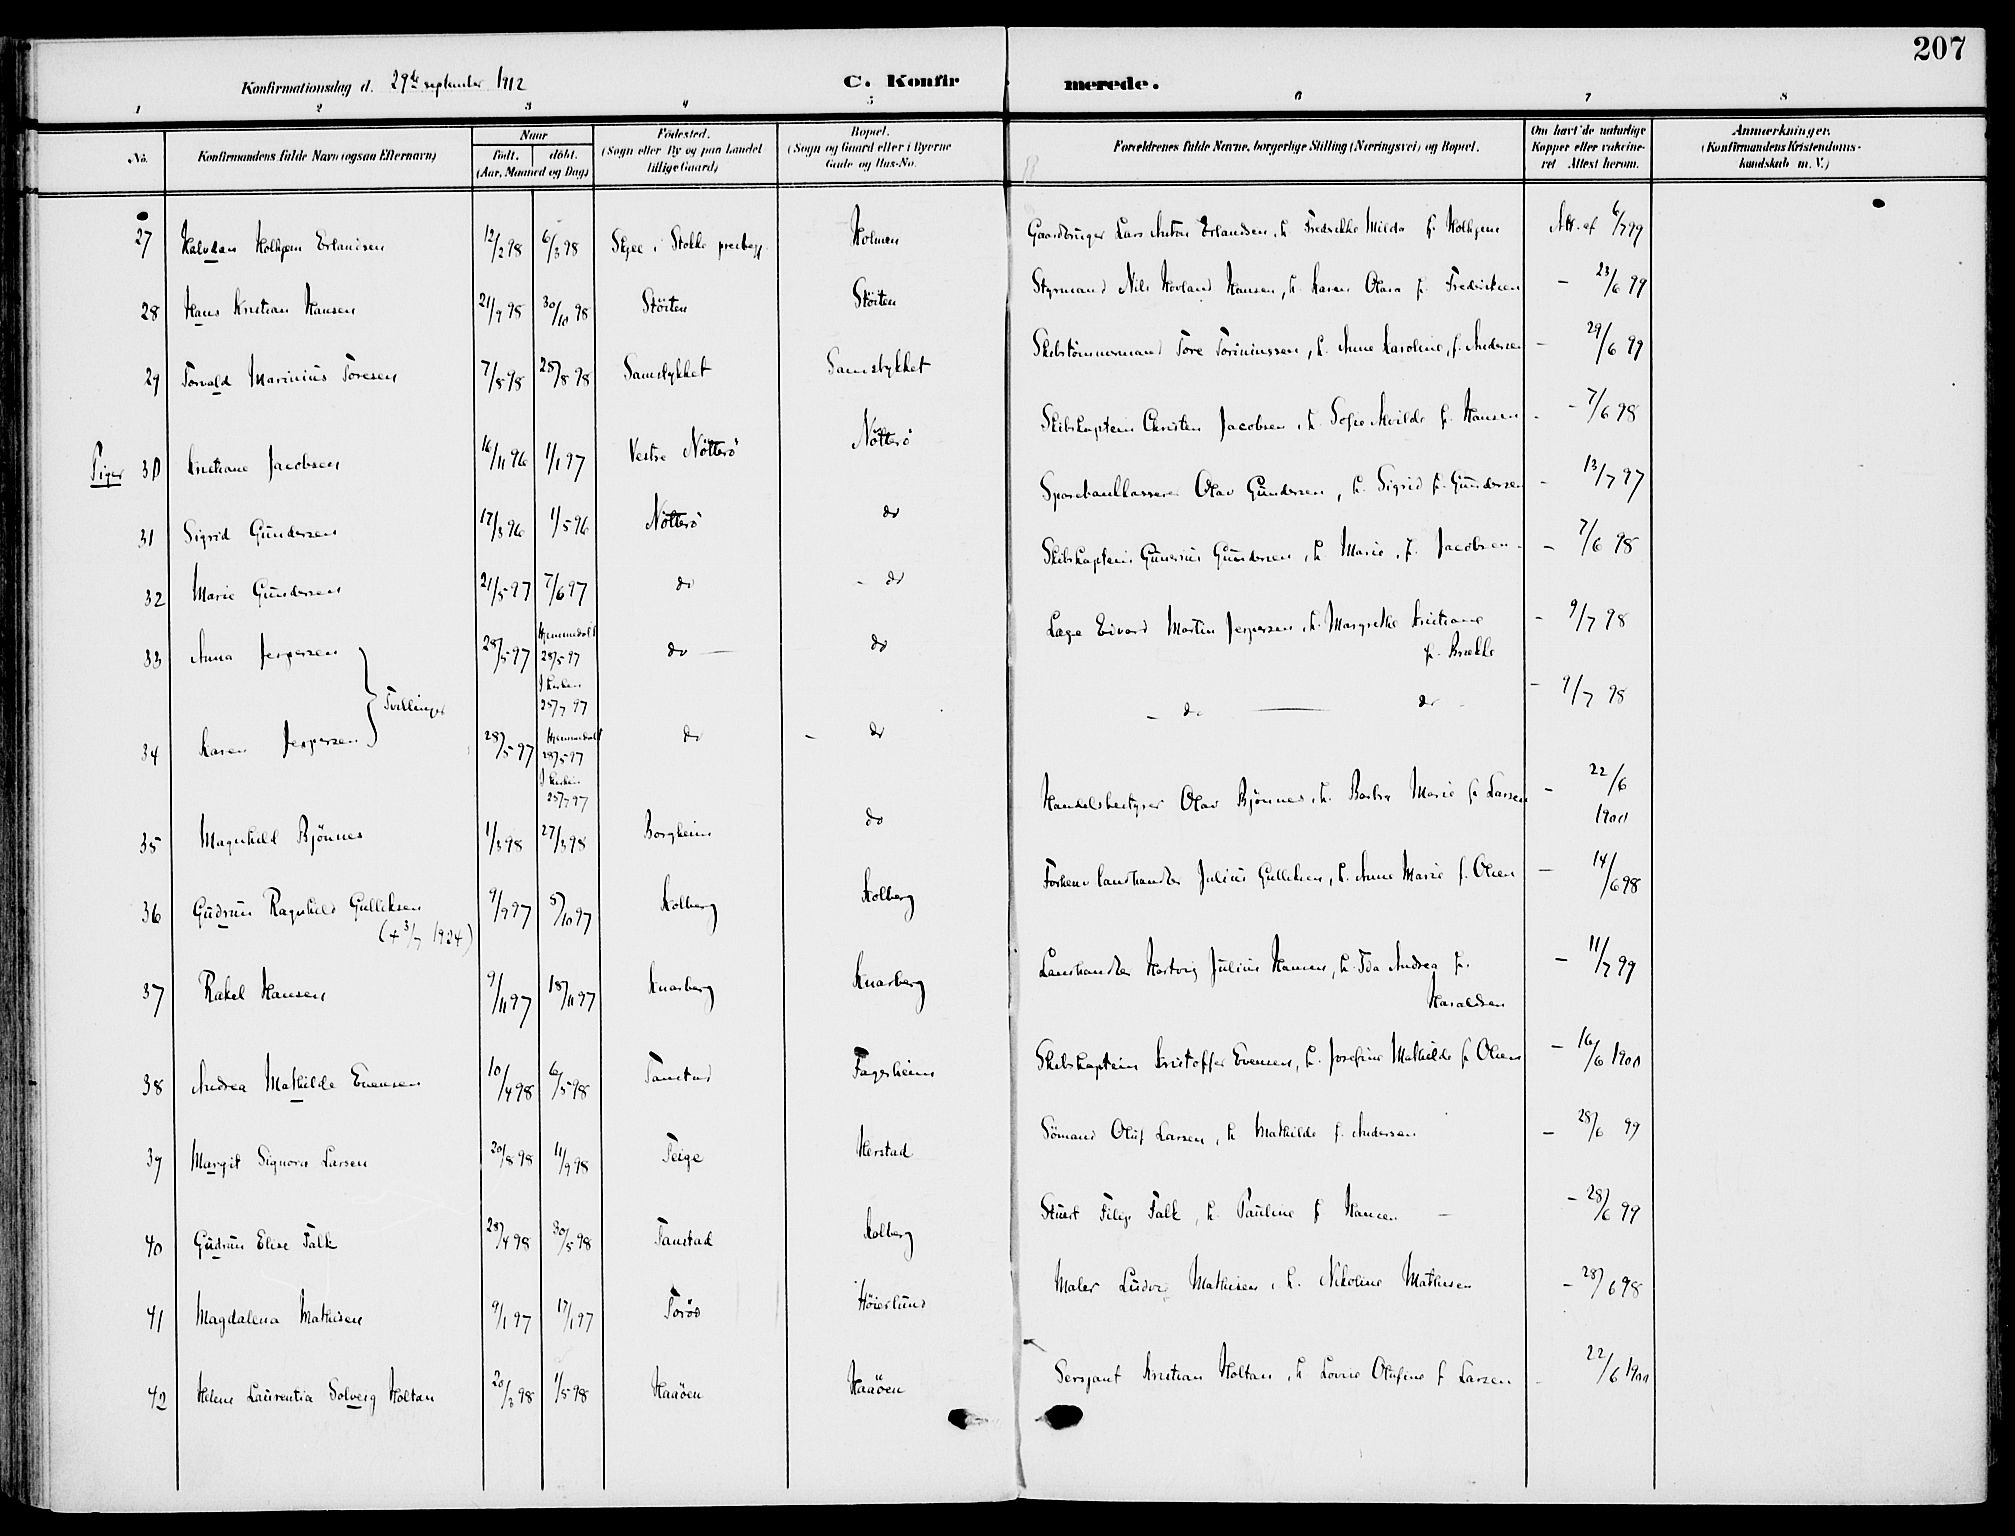 207
Konfirmationsdag d. 29de september 1912
C. Konfirmerede.
1 2 3 4 5 6 7 8
No. Konfirmandens fulde Navn (ogsaa Efternavn) Naar født. døbt. (Aar, Maaned og Dag) Fødested. (Sogn eller By og paa Landet tillige Gaard) Bopæl. (Sogn og Gaard eller i Byerne Gade og Hus-No. Forældrenes fulde Navne, borgerlige Stilling (Næringsvei) og Bopæl. Om havt de naturlige Kopper eller vakcineret Attest herom. Anmærkninger. (Konfirmandens Kristendomskundskab m. V.)
27 Halvdan Holhjem Erlandsen 12/2 98 6/3 98 Skjee i Stokke prestegj. Holmen Gaardbruger Lars Anton Erlandsen, h. Fredrikke Milda f. Holhjem Att. af 6/7 99
28 Hans Kristian Hansen 21/9 98 30/10 98 Støiten Støiten Styrmand Nils Hovland Hansen, h. Karen Olava f. Fredriksen - 23/6 99
29 Torvald Marinius Toresen 7/8 98 28/8 98 Samstykket Samstykket Skibstømmermand Tore Toriniussen, h. Anne Karoline, f. Andersen - 29/6 99
Piger 30 Kristiane Jacobsen 16/11 96 1/1 97 Vestre Nøtterø Nøtterø Skibskaptein Christen Jacobsen, h. Sofie Alvilde f. Hansen - 7/6 98
31 Sigrid Gundersen 17/3 96 1/5 96 Nøtterø do Sparebankkasserer Olav Gundersen, h. Sigrid f. Gundersen - 13/7 97
32 Marie Gundersen 21/5 97 7/6 97 do - do Skibskaptein Gunerius Gundersen, h. Marie, f. Jacobsen - 7/6 98
33 Anna Jespersen 28/5 97 Hjemmedøbt 28/5 97 I Kirken 25/7 97 do do Læge Eivard Martin Jespersen, h. Margrethe Kristiane f. Brække - 9/7 98
Tvillinger
34 Karen Jespersen 28/5 97 Hjemmedøbt 28/5 97 I Kirken 25/7 97 do - do - do do - 9/7 98
35 Magnhild Bjønnes 1/3 98 27/3 98 Borgheim do Handelsbestyrer Olav Bjønnes, h. Barbra Marie f. Larsen - 22/6 1900
36 Gudrun Ragnhild Gulliksen 9/9 97 5/10 97 Kolberg Kolberg Forhenv. landhandler Julius Gulliksen, h. Anne Marie f. Olsen - 14/6 98
(+ 3/7 1924)
37 Rakel Hansen 9/11 97 18/11 97 Knarberg Knarberg Landhandler Hartvig Julius Hansen, h. Ida Andrea f. Haraldsen - 11/7 99
38 Andrea Mathilde Evensen 10/4 98 6/5 98 Fanstad Fagerheim Skibskaptein Kristoffer Evensen, h. Josefine Mathilde f. Olsen - 16/6 1900
39 Margit Signora Larsen 20/8 98 11/9 98 Teige Herstad Sømand Oluf Larsen, h. Mathilde f. Andersen - 28/6 99
40 Gudrun Elise Falk 28/4 98 30/5 98 Fanstad Kolberg Stuert Filip Falk, h. Pauline f. Hansen - 28/6 99
41 Magdalena Mathisen 9/1 97 17/1 97 Torød Høierlund Maler Ludvig Mathisen, h. Nikoline Mathisen - 28/6 98
42 Helene Laurentia Solveig Holtan 20/3 98 1/5 98 Haaøen Haaøen Sersjant Kristian Holtan, h. Lovise Olufine f. Larsen - 22/6 1900